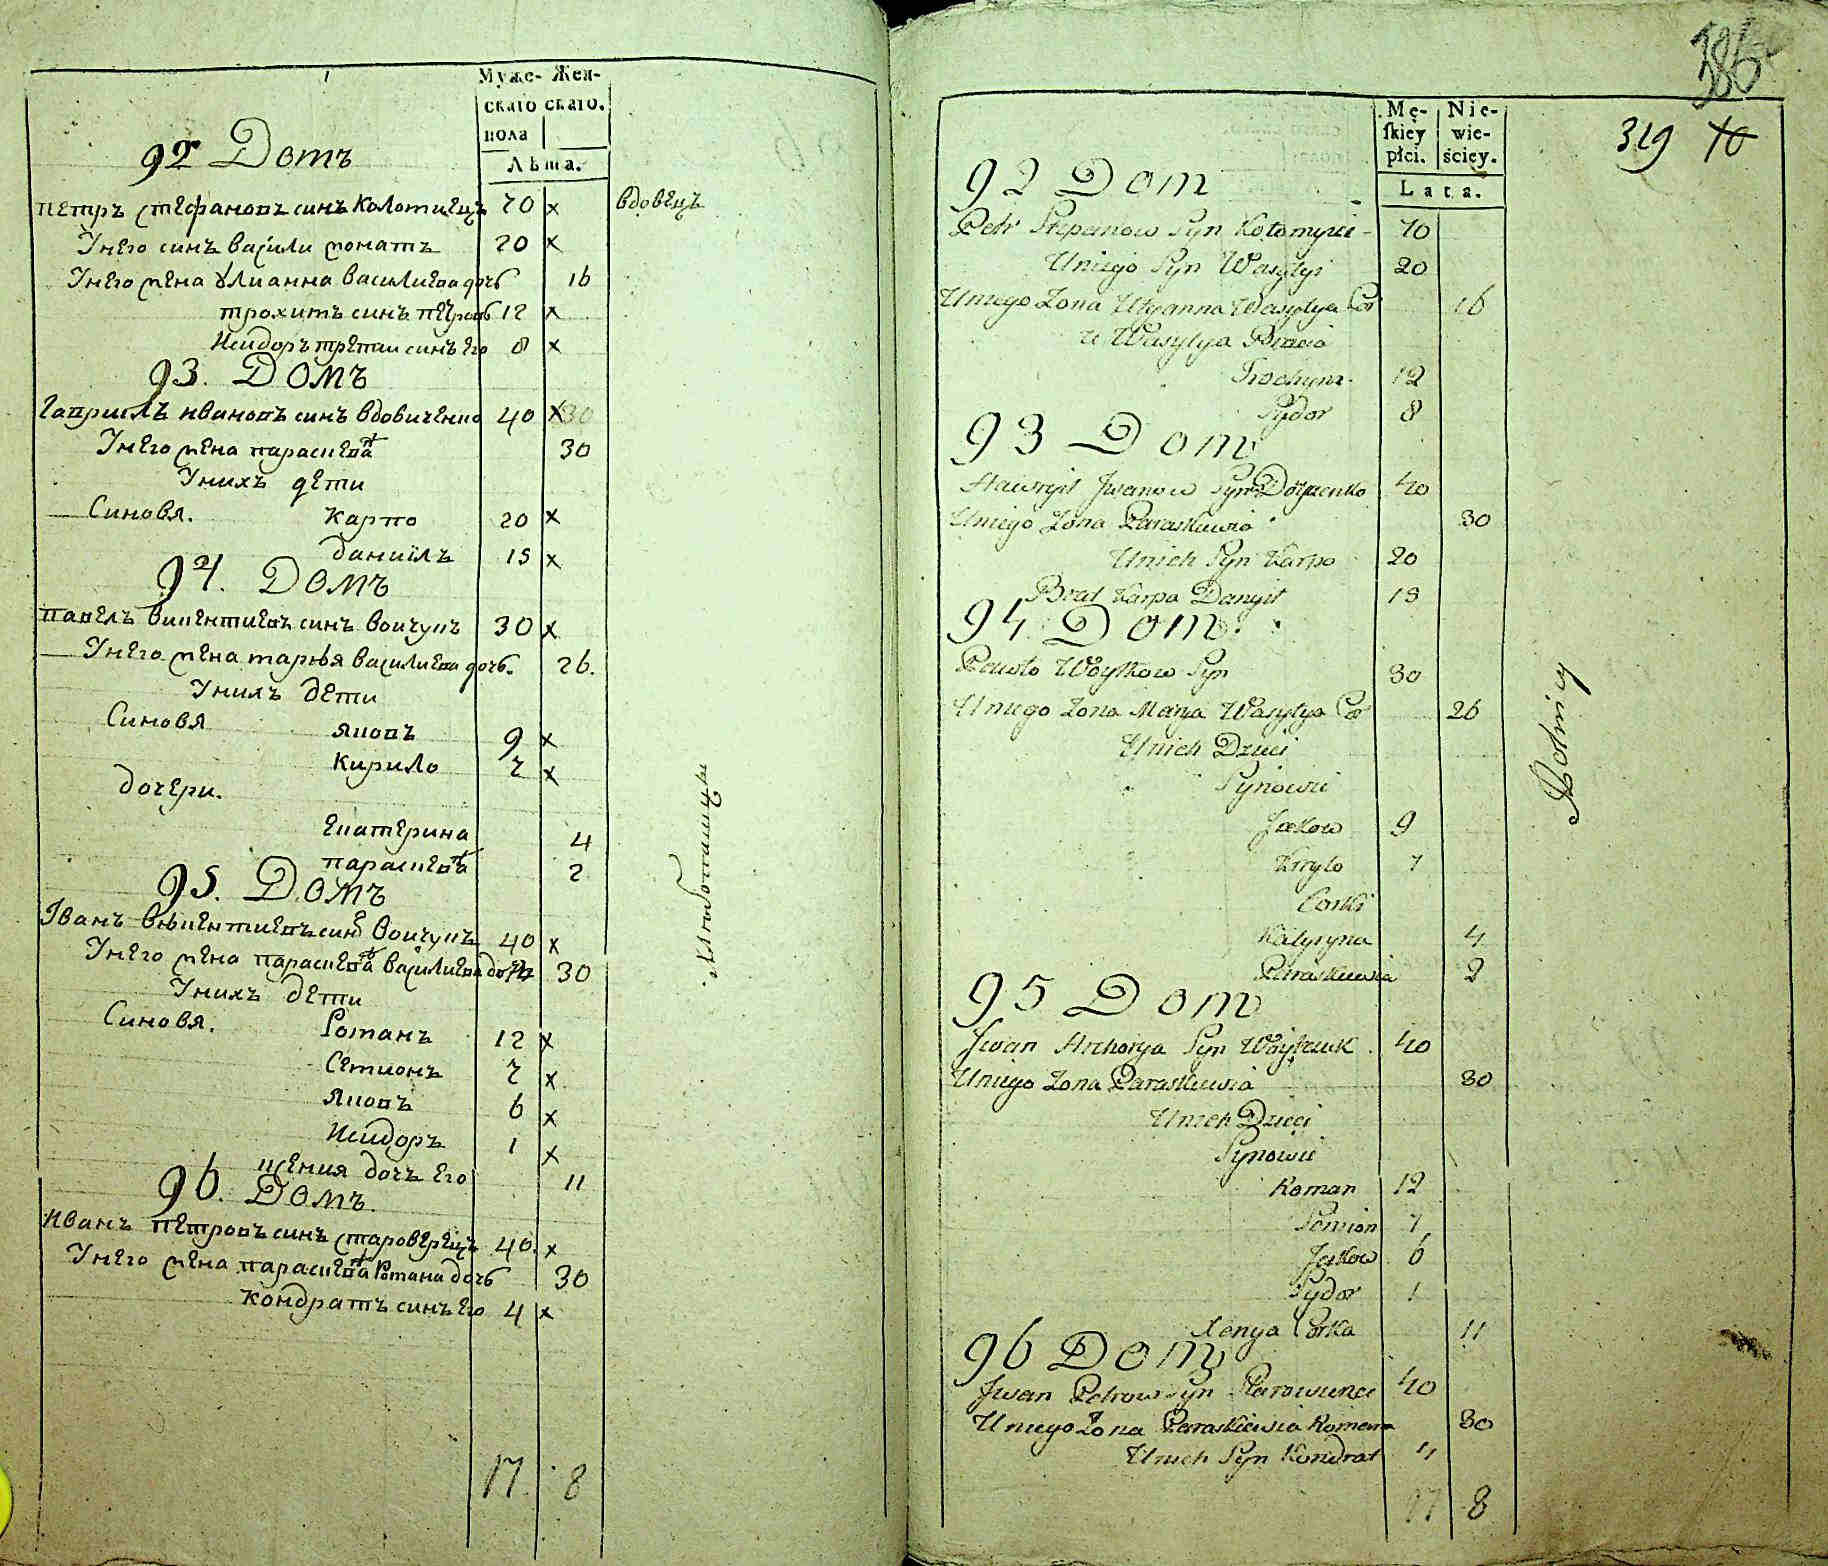 Муже- Жен-
скаго скаго.
пола
Лѣта.
92 Домъ
Петръ Стефановъ синъ Коломиецъ 70 x вдовецъ
Унего синъ Василий 20 x
Унего жена Улианна Василиева дочь 16
Трохимъ синъ Петровъ 12 x
Исидоръ третий синъ его 8 x
93. Домъ
Гавриилъ Ивановъ синъ Вдовиченко 40 x 30
Унего жена Параскева 30
Унихъ дети
Синовя. Карпо 20 x
Даниилъ 15 x
94. Домъ
Павелъ Викентиевъ синъ 30 x
Унего жена Марья Василиева дочь. 26.
Унихъ дети
Синовя Яковъ 9 x
Кирило 7 x
дочери.
Екатерина 4
Параскева 2
95. Домъ
Іванъ Викентиевъ синъ 40 x
Унего жена Параскева Василиева дочь 30
Унихъ дети
Синовя. Романъ 12 x
Семионъ 7 x
Яковъ 6 x
Исидоръ 1 x
Ксения дочь его 11
96. Домъ.
Иванъ Петровъ синъ Староверецъ 40. x
Унего жена Параскева Романа дочь 30
Кондратъ синъ его 4 x
17. 8
386
319 40
Mę- Nie-
skiey wie-
płci. ściey.
Lata.
92 Dom
Petr Stepanow Syn Kołomyiec 70
Uniego Syn Wasylyi 20
Uniego Zona Ulyanna Wasylya Cor 16
u Wasylya Bracia
Trochym 12
Sydor 8
93 Dom
Hawryił Jwanow Syn 40
Uniego Zona Paraskiewia 30
Unich Syn Karpo 20
Brat Karpa Danyił 15
94 Dom.
Pawło Woytkow Syn 30
Uniego Zona Marya Wasylya Cor 26
Unich Dzieci
Synowie
Jakow 9
Kiryło 7
Corki
Katyryna 4
Paraskiewia 2
95 Dom
Jwan Syn Woytczuk 40
Uniego Zona Paraskiewia 30
Unich Dzieci
Synowie
Roman 12
Semion 7
Jakow 6
Sydor 1
Xenya Corka 11
96 Dom
Jwan Petrow Syn Starowierec 40
Uniego Zona Paraskiewia Romana 30
Unich Syn Kondrat 4
17 8
Rolnicy